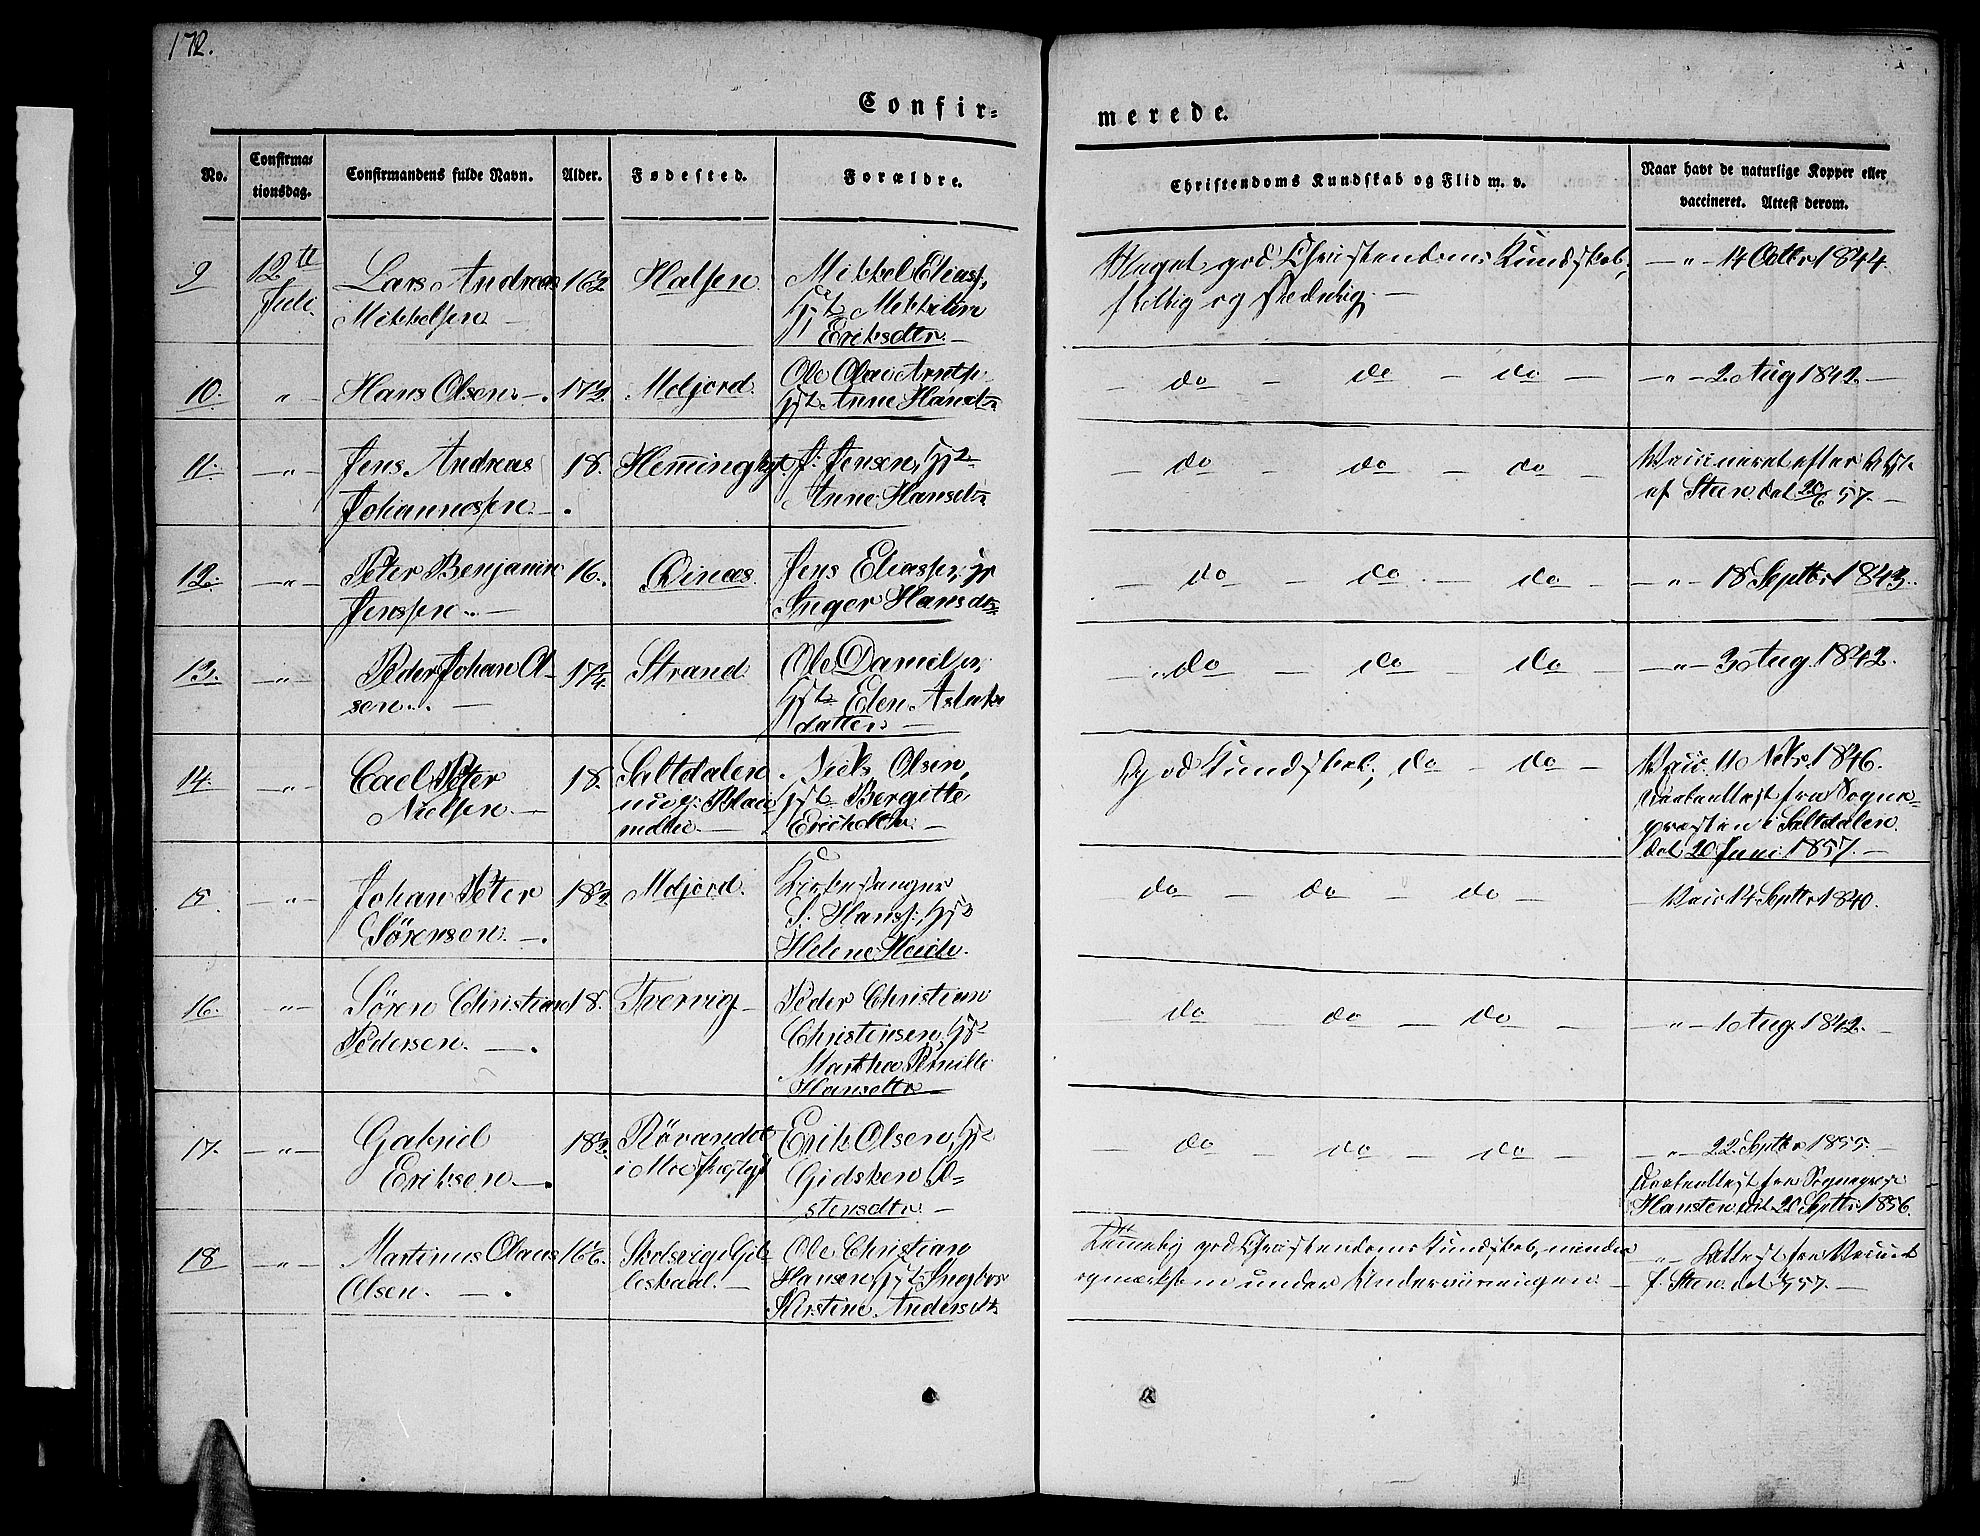 172.
Confir=
merede.
No.
Confirma=
tionsdag.
Confirmandens fulde Navn.
Alder.
Fødested.
Forældre.
Christendoms Kundskab og Flid m. v.
Naar havt de naturlige Kopper eller
vaccineret. Attest derom.
9
12te
Juli.
Lars Andreas
Mikkelsen
16½
Halsen.
Mikkel Elias,
Mikkeline
Eriksdtr.
Meget god Christendoms Kundskab,
flittig og sædelig.
— " — 14 Octbr. 1844.
10.
"
Hans Olsen.
17½
Meljord.
Ole Olai Arntsn
Anne Hansdtr
— do — do — do —
— " — 2 Aug 1842. —
11.
— " —
Jens Andreas
Johannessen.
18.
Hemingbyt
J: Jensen,
Anne Hansdtr
— do — do — do —
Vaccineret efter
af Steen dat 20/6 57. —
12.
— " —
Peter Benjamin
Jenssen.
16.
Qvinæs.
Jens Eliassn,
Inger Hansdtr
— do — do — do —
— " — 18 Septbr. 1843.
13.
— " —
Peder Johan Ol-
sen. —
17¼
Strand
Ole Daniels,
Elen Aslaks
datter —
— " do — do — do —
— " — 3 Aug. 1842.
14.
— " —
Carl Peter
Nielsen. —
18.
Saltdalen
Niels Olsen,
Bergitte
Ericksdtr. —
God Kundskab, do — do —
Vacc. 11 Nobr. 1846.
Daabsattest fra Sogne-
præsten i Saltdalen.
dat 20 Juni 1857. —
15.
— " —
Johan Peter
Sörensen. —
18½
Meljord.
Kirkesanger
S. Hanss:,
Helene
do — do — do —
— Vacc 14 Septbr 1840.
16.
— " —
Sören Christian
Pedersen. —
18.
Tvervig —
Peder Christian
Christensen,
Martha Pernille
Hansdtr —
— do — do — do —
— " — 1 Aug. 1842. —
17.
— " —
Gabriel
Eriksen. —
18½
Rövandet
i Moe
Erik Olsen,
Gidsken O-
stensdtr. —
— do — do — do —
— " — 22 Septbr 1855. —
Daabsattest fra Sognepræst
Hansten dat 20 Septbr. 1856.
18
— " —
Martinus Olaus
Olsen. —
16½.
Skolsvig i Gil-
leskaal. —
Ole Christian
Hansen, Ingbor
Kirstine Andersdtr
Temmelig god Christendoms Kundskab, mindre
opmærksom under Underviisningen. —
— " — Attest fra Vaccint
f. Steen. dat 57. —